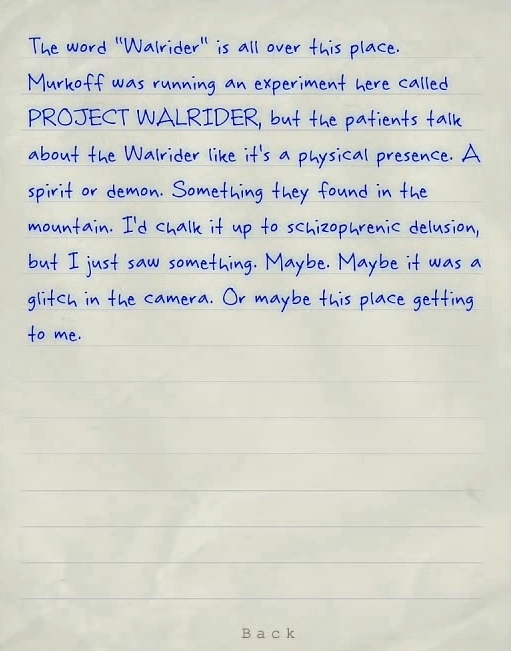 The word "Walrider" is all over this place.
Murkoff was running an experiment here called
PROJECT WALRIDER, but the patients talk
about the Walrider like it's a physical presence. A
spirit or demon. Something they found in the
mountain. I'd chalk it up to schizophrenic delusion,
but I just saw something. Maybe. Maybe it was a
glitch in the camera. Or maybe this place getting
to me.
Back